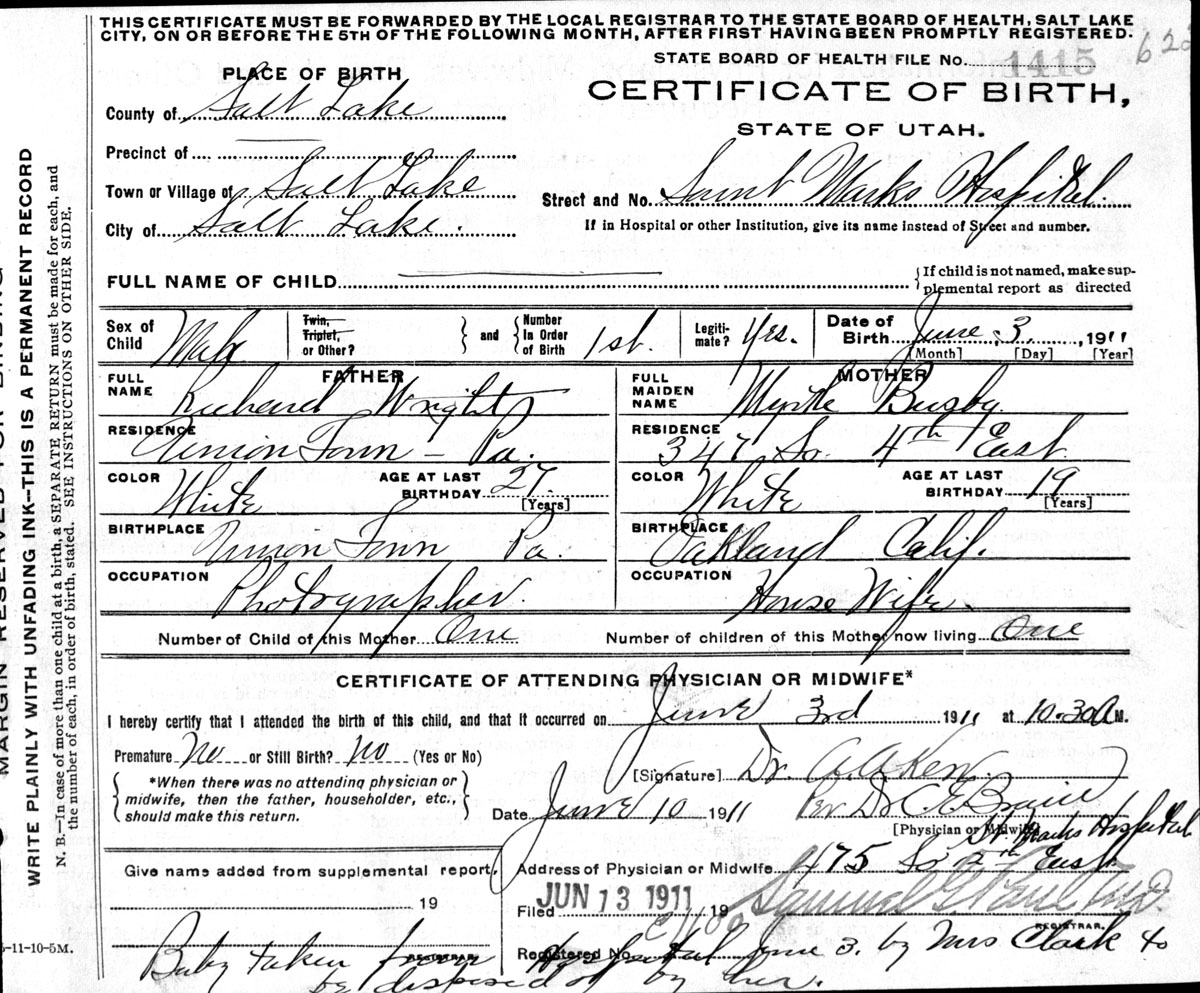 THIS CERTIFICATE MUST BE FORWARDED BY THE LOCAL REGISTRAR TO THE STATE BOARD OF HEALTH, SALT LAKE
CITY, ON OR BEFORE THE 5TH OF THE FOLLOWING MONTH, AFTER FIRST HAVING BEEN PROMPTLY REGISTERED.
STATE BOARD OF HEALTH FILE No. 1415
PLACE OF BIRTH
CERTIFICATE OF BIRTH,
County of Salt Lake
STATE OF UTAH.
Precinct of
Town or Village of Salt Lake
Street and No. Saint Marks Hospital.
City of Salt Lake.
If in Hospital or other Institution, give its name instead of Street and number.
FULL NAME OF CHILD
If child is not named, make sup-
plemental report as directed
Sex of Child Male
Twin, Triplet, or Other?
and
Number In Order of Birth 1st.
Legiti-mate? Yes.
Date of Birth June 3, 1911
[Month] [Day] [Year]
FATHER
MOTHER
FULL NAME Richard Wright
FULL MAIDEN NAME Myrtle Busby
RESIDENCE Union Town - Pa.
RESIDENCE 347 So. 4th East
COLOR White AGE AT LAST BIRTHDAY 27 [Years]
COLOR White AGE AT LAST BIRTHDAY 19 [Years]
BIRTHPLACE Union Town Pa.
BIRTHPLACE Oakland Calif.
OCCUPATION Photographer.
OCCUPATION House Wife.
Number of Child of this Mother One
Number of children of this Mother now living One
CERTIFICATE OF ATTENDING PHYSICIAN OR MIDWIFE*
I hereby certify that I attended the birth of this child, and that it occurred on June 3rd 1911 at 10.30 A M.
Premature No or Still Birth? No (Yes or No)
[Signature] Dr.
*When there was no attending physician or
midwife, then the father, householder, etc.,
should make this return.
Date June 10 1911 Per Dr C. E.
[Physician or Midwife]
St. Marks Hospital
Give name added from supplemental report.
Address of Physician or Midwife 475 So East
19
Filed JUN 13 1911 19 Samuel G. Paul M.D.
REGISTRAR.
REGISTRAR.
Registered No.
Baby taken from Hospital June 3. by Mrs Clark to
be disposed of by her.
5-11-10-5M.
MARGIN RESERVED FOR BINDING
WRITE PLAINLY WITH UNFADING INK—THIS IS A PERMANENT RECORD
N. B.—In case of more than one child at a birth, a SEPARATE RETURN must be made for each, and
the number of each, in order of birth, stated. SEE INSTRUCTIONS ON OTHER SIDE.